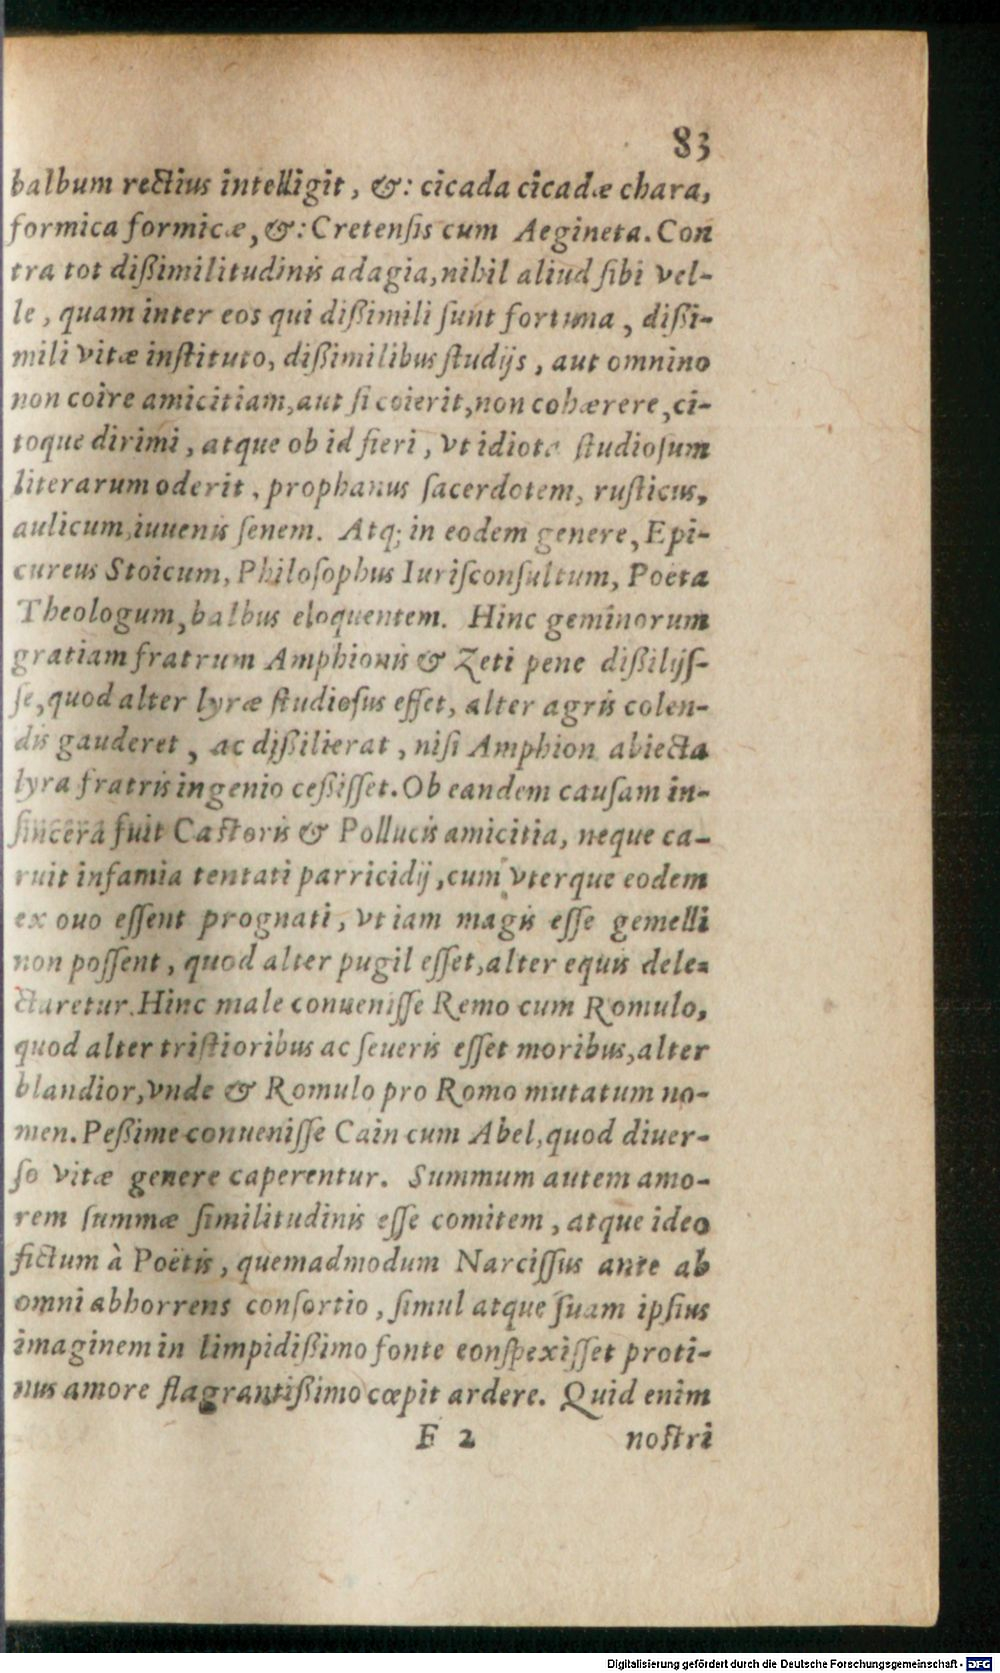 83
balbum rectius intelligit, &: cicada cicadæ chara,
formica formicæ, &: Cretenſis cum Aegineta. Con
tra tot dißimilitudinis adagia, nihil aliud ſibi vel-
le, quam inter eos qui dißimili ſunt fortuna, dißi-
mili vitæ inſtituto, dißimilibus ſtudijs, aut omnino
non coire amicitiam, aut ſi coierit, non cohærere, ci-
toque dirimi, atque ob id fieri, vt idiota ſtudioſum
literarum oderit, prophanus ſacerdotem, ruſticus,
aulicum, iuuenis ſenem. Atq; in eodem genere, Epi-
cureus Stoicum, Philoſophus Iuriſconſultum, Poëta
Theologum, balbus eloquentem. Hinc geminorum
gratiam fratrum Amphionis & Zeti pene dißilijſ-
ſe, quod alter lyræ ſtudioſus eſſet, alter agris colen-
dis gauderet, ac dißilierat, niſi Amphion abiecta
lyra fratris ingenio ceßiſſet. Ob eandem cauſam in-
ſincera fuit Caſtoris & Pollucis amicitia, neque ca-
ruit infamia tentati parricidij, cum vterque eodem
ex ouo eſſent prognati, vt iam magis eſſe gemelli
non poſſent, quod alter pugil eſſet, alter equis dele-
ctaretur. Hinc male conueniſſe Remo cum Romulo,
quod alter triſtioribus ac ſeueris eſſet moribus, alter
blandior, vnde & Romulo pro Romo mutatum no-
men. Peßime conueniſſe Cain cum Abel, quod diuer-
ſo vitæ genere caperentur. Summum autem amo-
rem ſummæ ſimilitudinis eſſe comitem, atque ideo
fictum à Poëtis, quemadmodum Narciſſus ante ab
omni abhorrens conſortio, ſimul atque ſuam ipſius
imaginem in limpidißimo fonte conſpexiſſet proti-
nus amore flagrantißimo cœpit ardere. Quid enim
F 2 noſtri
Digitalisierung gefördert durch die Deutsche Forschungsgemeinschaft - DFG